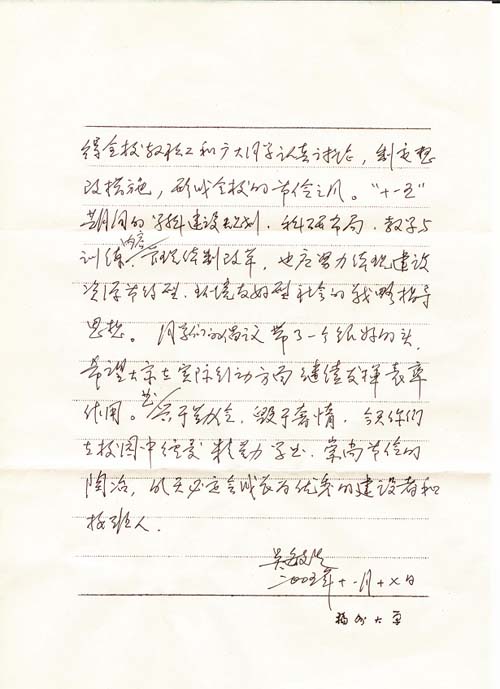 得全校教职工和广大同学认真讨论，制定整
改措施，形成全校的节俭之风。“十一五”
期间的学科建设规划、科研布局、教学与
训练内容、管理体制改革，也应努力体现建设
资源节约型、环境友好型社会的战略指导
思想。同学们的倡议带了一个很好的头，
希望大家在实际行动方面继续发挥表率
作用。业兴于勤俭，毁于奢惰，今天你们
在校园中经受精勤学业、崇尚节俭的
陶冶，明天必定会成长为优秀的建设者和
接班人.
吴敏生
二〇〇五年十一月十日
福州大学